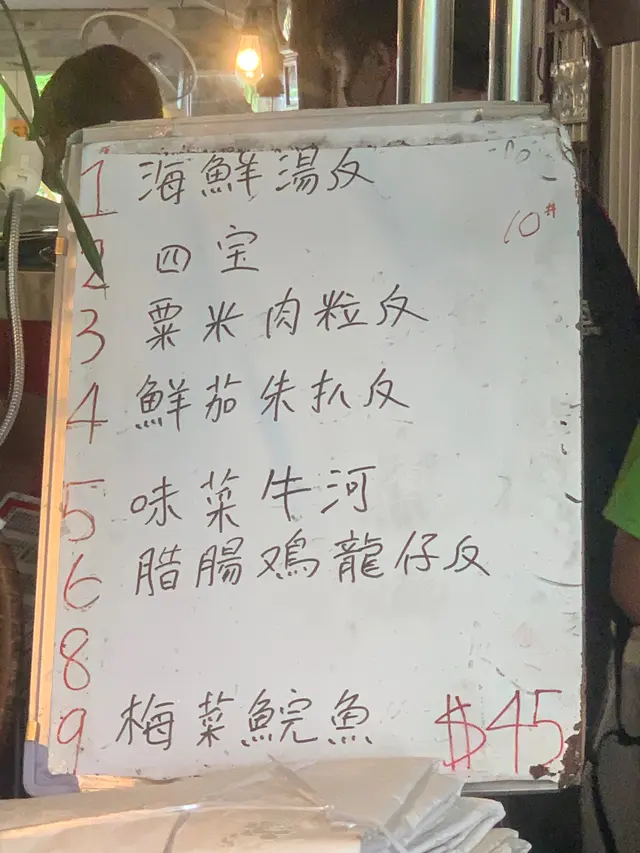 1 海鮮湯反
10#
2 四宝
3 粟米肉粒反
4 鮮茄朱扒反
5 味菜牛河
6 腊腸鸡龍仔反
8
9 梅菜鯇魚 $45